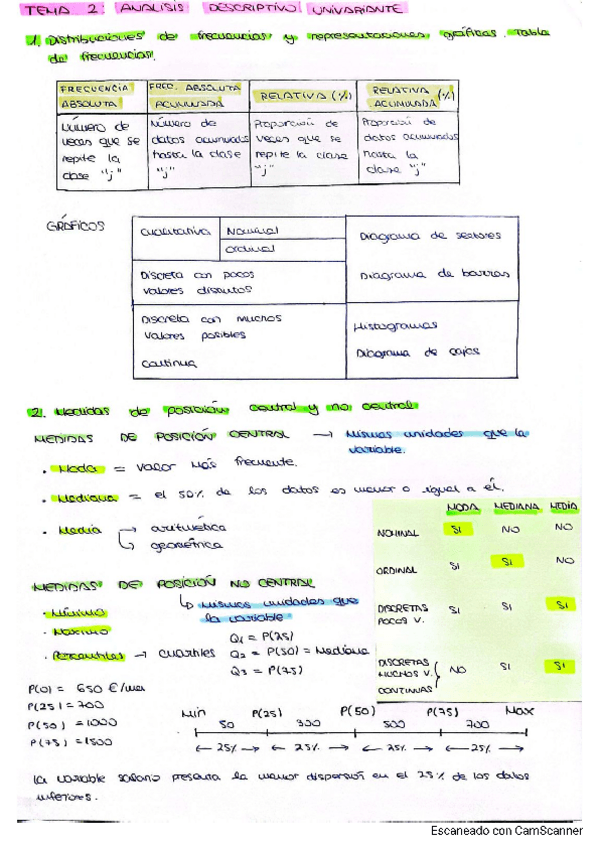 TEMA 2: ANALISIS DESCRIPTIVO UNIVARIANTE
1. Distribuciones de frecuencias y representaciones gráficas. Tabla
de frecuencias.
FRECUENCIA ABSOLUTA
FREC. ABSOLUTA ACUMULADA
RELATIVA (%)
RELATIVA ACUMULADA (%)
Número de veces que se repite la clase "j"
Número de datos acumulados hasta la clase "j"
Proporción de veces que se repite la clase "j"
Proporción de datos acumulados hasta la clase "j"
GRÁFICOS
Cualitativa
Nominal
Ordinal
Diagrama de sectores
Discreta con pocos
valores distintos
Diagrama de barras
Discreta con muchos
valores posibles
Continua
Histogramas
Diagrama de cajas
2. Medidas de posición central y no central
MEDIDAS DE POSICIÓN CENTRAL → Mismas unidades que la
variable.
· Moda = valor más frecuente.
· Mediana = el 50% de los datos es menor o igual a él.
· Media → aritmética
↳ geométrica
MODA MEDIANA MEDIA
NOMINAL SI NO NO
ORDINAL SI SI NO
DISCRETAS POCOS V. SI SI SI
DISCRETAS MUCHOS V. CONTINUAS NO SI SI
MEDIDAS DE POSICIÓN NO CENTRAL
↳ Mismas unidades que
la variable
· Mínimo
· Máximo
· Percentiles → cuartiles
Q1 = P(25)
Q2 = P(50) = Mediana
Q3 = P(75)
P(0) = 650 €/mes
P(25) = 700
P(50) = 1000
P(75) = 1500
Min P(25) P(50) P(75) Max
50 300 500 700
← 25% → ← 25% → ← 25% → ← 25% →
La variable salario presenta la menor dispersión en el 25% de los datos
inferiores.
Escaneado con CamScanner